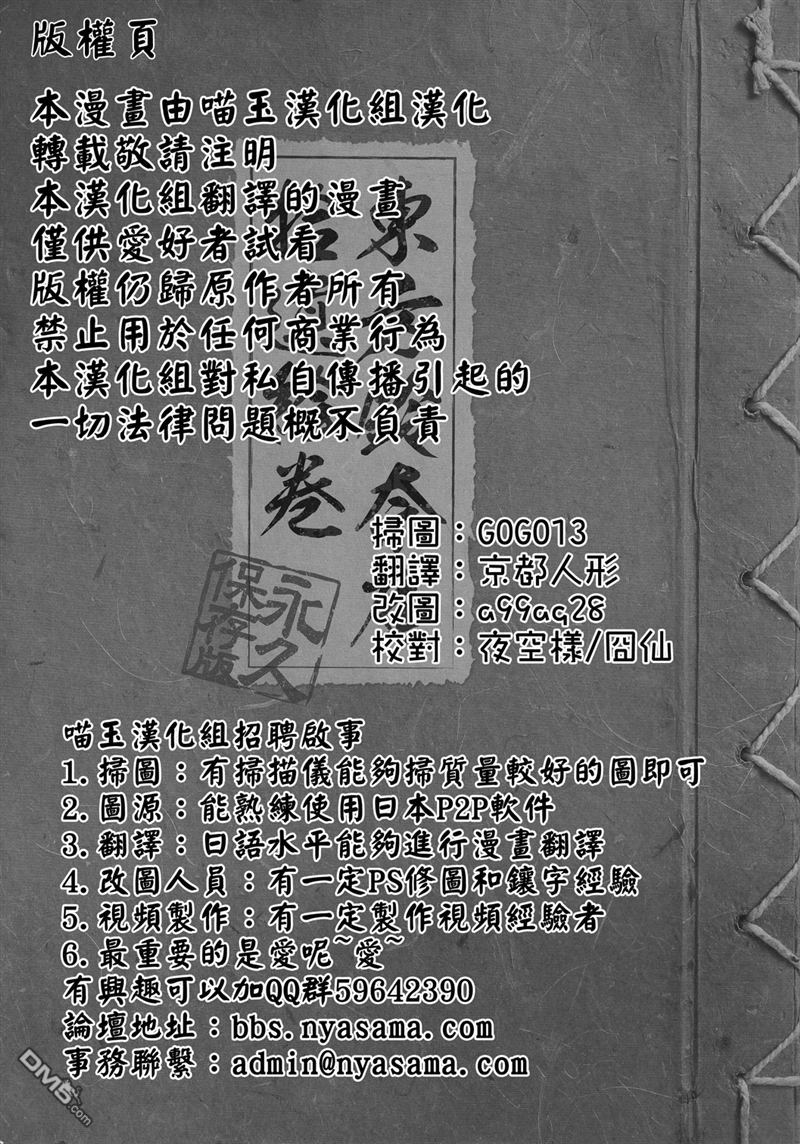 版權頁
本漫畫由喵玉漢化組漢化
轉載敬請注明
本漢化組翻譯的漫畫
僅供愛好者試看
版權仍歸原作者所有
禁止用於任何商業行為
本漢化組對私自傳播引起的
一切法律問題概不負責
掃圖：GOGO13
翻譯：京都人形
改圖：a99aq28
校對：夜空樣/囧仙
永久
保存版
喵玉漢化組招聘啟事
1.掃圖：有掃描儀能夠掃質量較好的圖即可
2.圖源：能熟練使用日本P2P軟件
3.翻譯：日語水平能夠進行漫畫翻譯
4.改圖人員：有一定PS修圖和鑲字經驗
5.視頻製作：有一定製作視頻經驗者
6.最重要的是愛呢~愛~
有興趣可以加QQ群59642390
論壇地址：bbs.nyasama.com
事務聯繫：admin@nyasama.com
DM5.com